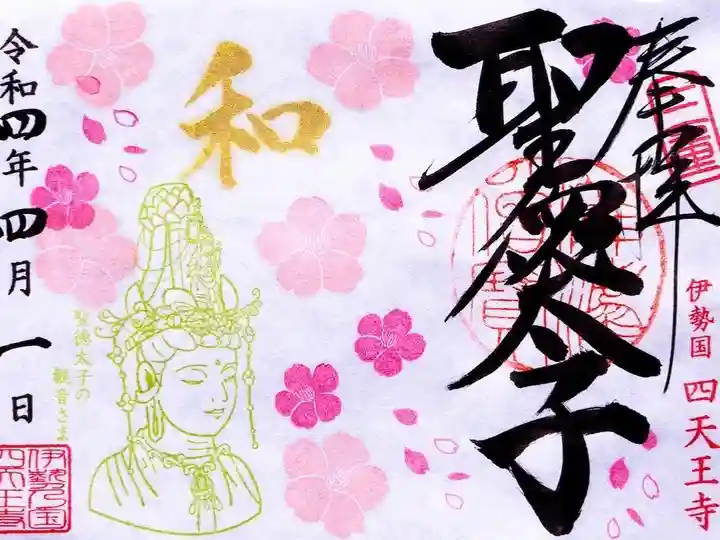 奉拝
三重
聖徳太子
伊勢国 四天王寺
和
聖徳太子の
観音さま
令和四年四月一日
伊勢之国
四天王寺